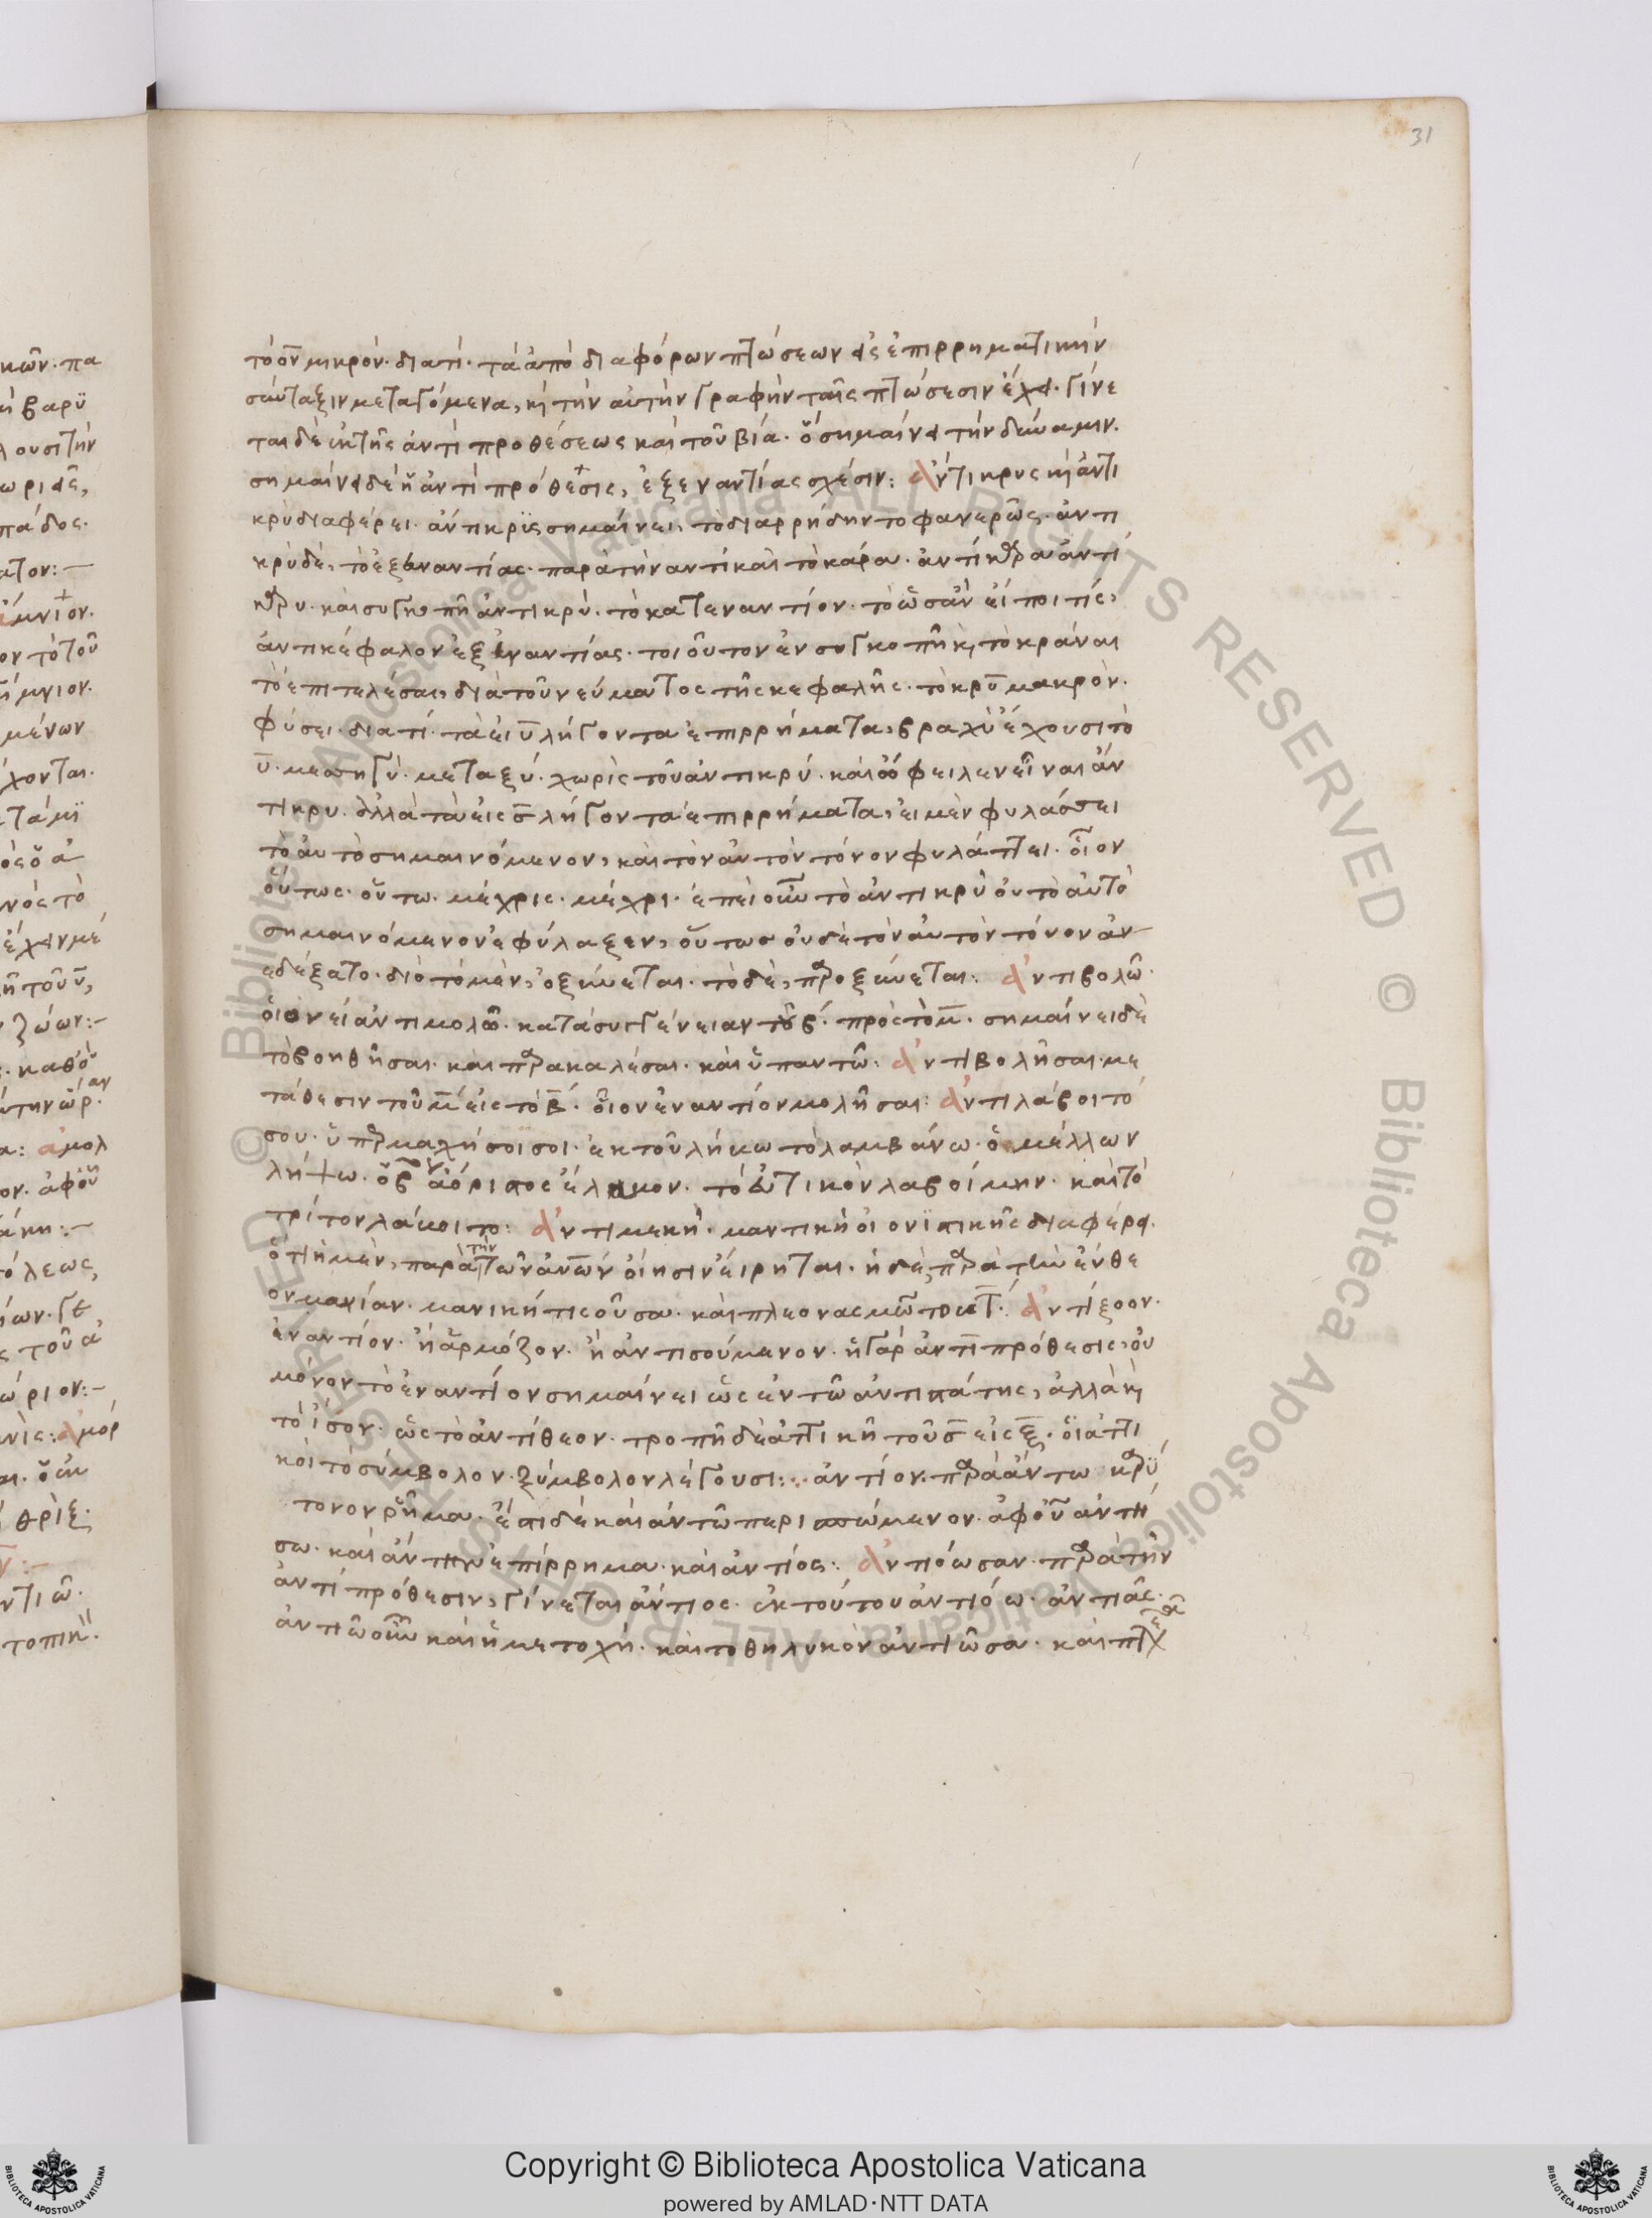 31
τὸ ον μικρόν· διατί· τὰ ἀπὸ διαφόρων πτώσεων εἰς ἐπιρρηματικὴν
σύνταξιν μεταγόμενα, κ̀ τὴν αὐτὴν γραφὴν ταῖς πτώσεσιν ἔχει· γίνε
ται δὲ ἐκ τῆς ἀντὶ προθέσεως καὶ τοῦ βία· ὃ σημαίνει τὴν δύναμιν.
σημαίνει δὲ ἡ ἀντὶ πρόθεσις, ἐξεναντίας σχέσιν: ἄντικρυς κ̀ ἀντι
κρὺ διαφέρει· ἄντικρϊς σημαίνει, τὸ διαρρήδην το φανερῶς· ἀντι
κρὺ δὲ, τὸ ἐξεναντίας· παρὰ τὴν αντὶ καὶ τὸ κάρα· ἀντίκαρα ἀντί
καρυ· καὶ συγκοπῆ ἀντικρύ· τὸ κατεναντίον· τὸ ὡσὰν εἴποι τίς,
ἀντικέφαλον ἐξεναντίας· τοιοῦτον ἐν συγκοπῆ κ̀ τὸ κράναι
τὸ ἐπιτελέσαι, διὰ τοῦ νεύματος τῆς κεφαλῆς· τὸ κρυ μακρὸν·
φύσει· διατί· τὰ εἰ υ λήγοντα ἐπιρρήματα, βραχὺ ἔχουσι τὸ
υ· μεσηγύ· μεταξύ· χωρὶς τοῦ ἀντικρύ· καὶ ὤφειλεν εἶναι ἄν
τικρυ· ἀλλὰ τὰ εἰς ς λήγοντα ἐπιρρήματα, εἰ μὲν φυλάσσει
τὸ αὐτὸ σημαινόμενον, καὶ τὸν αὐτὸν τόνον φυλάττει· οἷον
οὕτως· οὕτω· μέχρις· μέχρι· ἐπεὶ οὖν τὸ ἀντικρὺ οὐ τὸ αὐτὸ
σημαινόμενον ἐφύλαξεν, οὕτως οὐδὲ τὸν αὐτὸν τόνον ἀν
εδέξατο· διὸ τὸ μὲν, ὀξύνεται· τὸ δὲ, παροξύνεται: ἀντιβολῶ·
οἱονεὶ ἀντιμολῶ· κατὰ συγγένειαν τοῦ β· πρὸς τὸ μ· σημαίνει δὲ
τὸ βοηθῆσαι· καὶ παρακαλέσαι· καὶ ὑπαντῶ: ἀντιβολῆσαι· με
τάθεσιν τοῦ μ εἰς τὸ β· οἷον ἐναντίον μολῆσαι: ἀντιλάβοιτό
σου· ὑπερμαχήσοϊ σοι· ἐκ τοῦ λήβω τὸ λαμβάνω· ὁ μέλλων
λήψω· ὁ β ἀόριστος ἔλαβον· τὸ εὐκτικὸν λαβοίμην· καὶ τὸ
τρίτον λάβοιτο: ἀντιμεκὴ· μαντικὴ οἰονϊστικῆς διαφέρει·
ὅτι ἡ μὲν, παρὰ τὴν τῶν ἀν̅ων οἴησιν εἴρηται· ἡ δὲ, παρὰ τὴν ἔνθε
ον μανίαν· μανική τις οὖσα· καὶ πλεονασμῶ τοῦ τ: ἀντίξοον·
ἐναντίον· ἢ ἁρμόζον· ἢ ἀντισούμενον· ἡ γὰρ ἀντι πρόθεσις, οὐ
μόνον τὸ ἐναντίον σημαίνει ὡς ἐν τῶ ἀντιστάτης, ἀλλὰ κ̀
τὸ ἴσον· ὡς τὸ ἀντίθεον· τροπῆ δὲ ἀττικῆ τοῦ σ εἰς ξ· οἱ ἀττι
κοὶ τὸ σύμβολον· ξύμβολον λέγουσι:· ἀντίον· παρὰ ἄντω βαρύ
τονον ῥῆμα· ἔστι δὲ καὶ ἀντῶ περισπώμενον· ἀφοῦ ἀντή
σω· καὶ ἀντην ἐπίρρημα· καὶ ἀντίος: ἀντιόωσαν· παρὰ τὴν
ἀντὶ πρόθεσιν, γίνεται ἀντίος· ἐκ τούτου ἀντιόω· ἀντιᾶς·
ἀντιῶ οὖν καὶ ἡ μετοχή· καὶ το θηλυκὸν ἀντιῶσα· καὶ
© Biblioteca Apostolica Vaticana ALL RIGHTS RESERVED
Copyright © Biblioteca Apostolica Vaticana
powered by AMLAD·NTT DATA
BIBLIOTECA APOSTOLICA VATICANA
BIBLIOTECA APOSTOLICA VATICANA